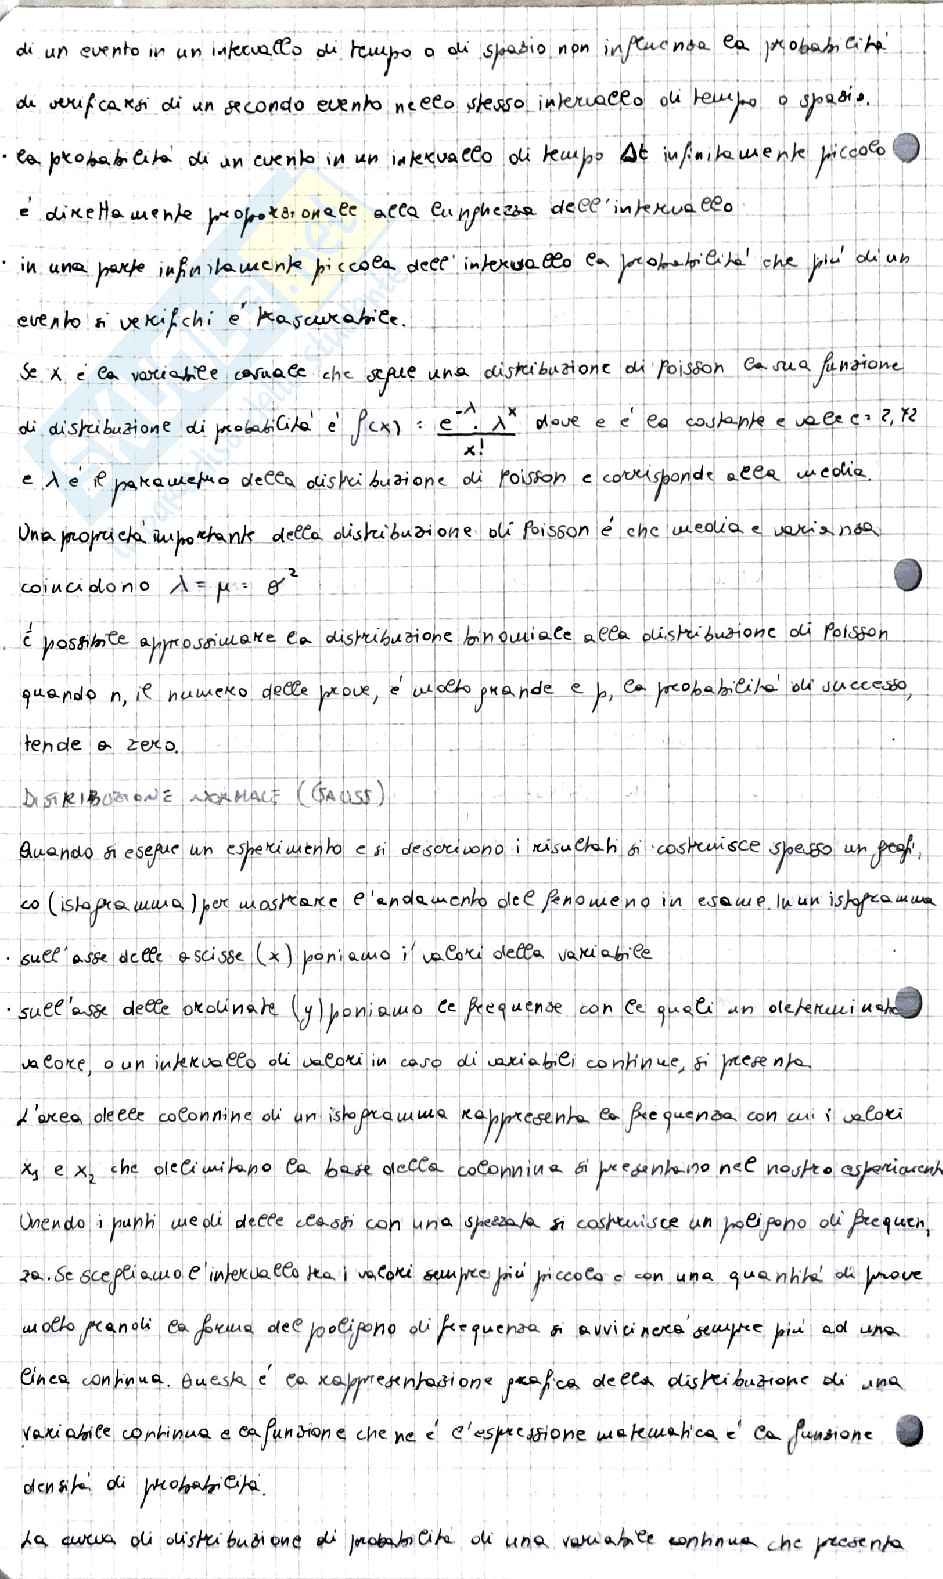 di un evento in un intervallo di tempo o di spazio non influenza la probabilità
di verificarsi di un secondo evento nello stesso intervallo di tempo o spazio.
· la probabilità di un evento in un intervallo di tempo Δt infinitamente piccolo
è direttamente proporzionale alla lunghezza dell'intervallo
· in una parte infinitamente piccola dell'intervallo la probabilità che più di un
evento si verifichi è trascurabile.
Se x è la variabile casuale che segue una distribuzione di Poisson la sua funzione
di distribuzione di probabilità è f(x) = e^-λ · λ^x / x! dove e è la costante e vale e = 2,72
e λ è il parametro della distribuzione di Poisson e corrisponde alla media.
Una proprietà importante della distribuzione di Poisson è che media e varianza
coincidono λ = μ = σ²
. È possibile approssimare la distribuzione binomiale alla distribuzione di Poisson
quando n, il numero delle prove, è molto grande e p, la probabilità di successo,
tende a zero.
DISTRIBUZIONE NORMALE (GAUSS)
Quando si esegue un esperimento e si descrivono i risultati si costruisce spesso un grafi,
co (istogramma) per mostrare l'andamento del fenomeno in esame. In un istogramma
· sull'asse delle ascisse (x) poniamo i valori della variabile
· sull'asse delle ordinate (y) poniamo le frequenze con le quali un determinato
valore, o un intervallo di valori in caso di variabili continue, si presenta
L'area delle colonnine di un istogramma rappresenta la frequenza con cui i valori
x₁ e x₂ che delimitano la base della colonnina si presentano nel nostro esperimento
Unendo i punti medi delle classi con una spezzata si costruisce un poligono di frequen,
za. Se scegliamo l'intervallo tra i valori sempre più piccolo e con una quantità di prove
molto grandi la forma del poligono di frequenza si avvicinerà sempre più ad una
linea continua. Questa è la rappresentazione grafica della distribuzione di una
variabile continua e la funzione che ne è l'espressione matematica è la funzione
densità di probabilità.
La curva di distribuzione di probabilità di una variabile continua che presenta